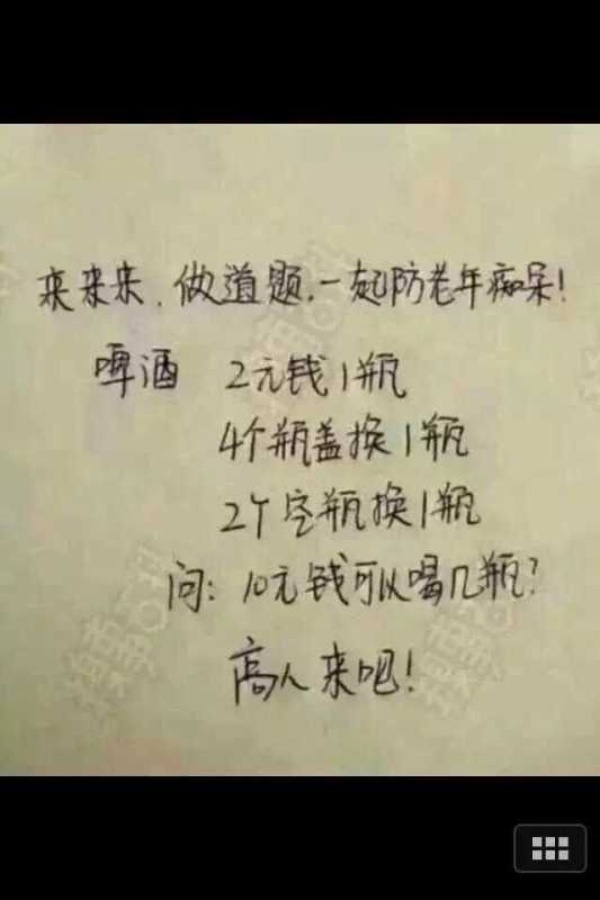 来来来.做道题.一起防老年痴呆!
啤酒 2元钱1瓶
4个瓶盖换1瓶
2个空瓶换1瓶
问:10元钱可以喝几瓶?
高人来吧!